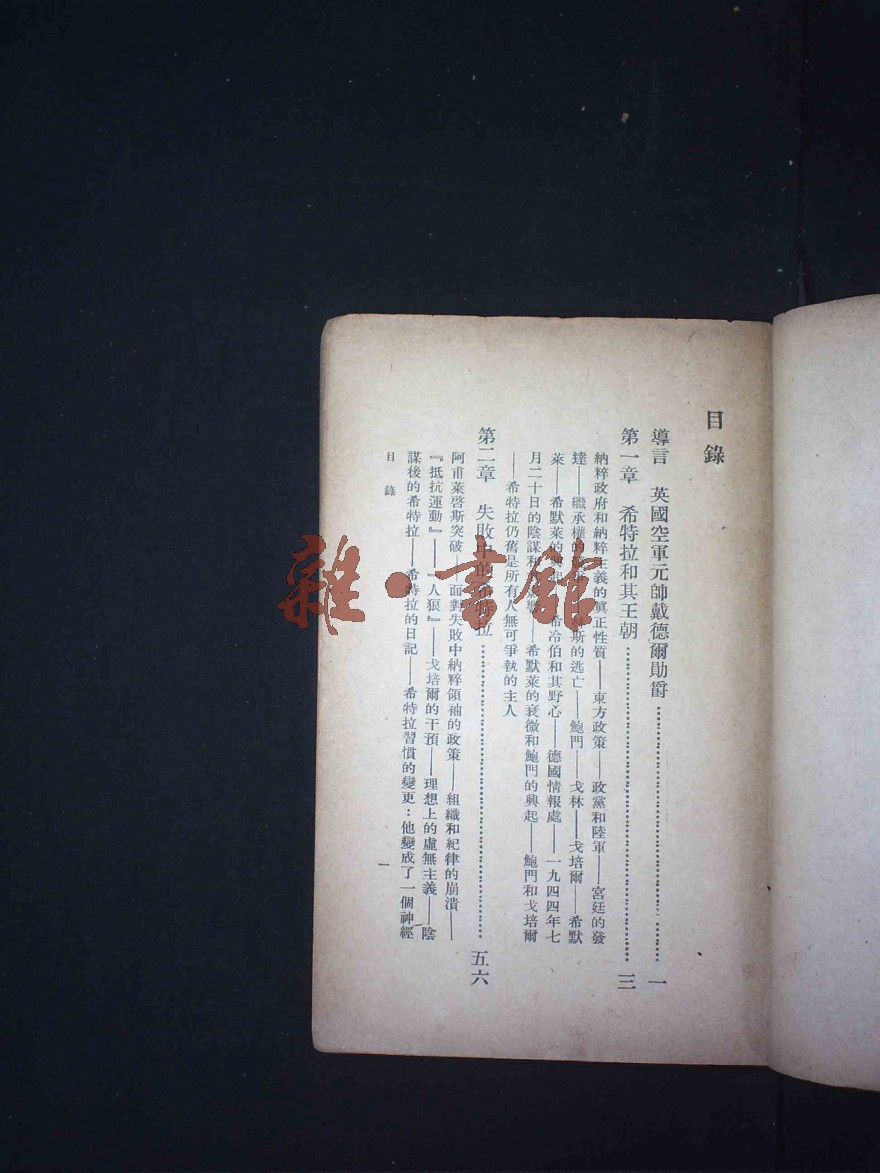 目錄
導言 英國空軍元帥戴德爾勛爵…………………………一
第一章 希特拉和其王朝…………………………三
納粹政府和納粹主義的眞正性質——東方政策——政黨和陸軍——宮廷的發
達——繼承權的 斯的逃亡——鮑門——戈林——戈培爾——希默
萊——希默萊的 希冷伯和其野心——德國情報處——一九四四年七
月二十日的陰謀和 ——希默萊的衰微和鮑門的興起——鮑門和戈培爾
——希特拉仍舊是所有人無可爭執的主人
第二章 失敗中的希特拉…………………………五六
阿甫萊啓斯突破——面對失敗中納粹領袖的政策——組織和紀律的崩潰——
『抵抗運動』——『人狼』——戈培爾的干預——理想上的虛無主義——陰
謀後的希特拉——希特拉的日記——希特拉習慣的變更：他變成了一個神經
目錄
一
雜·書館